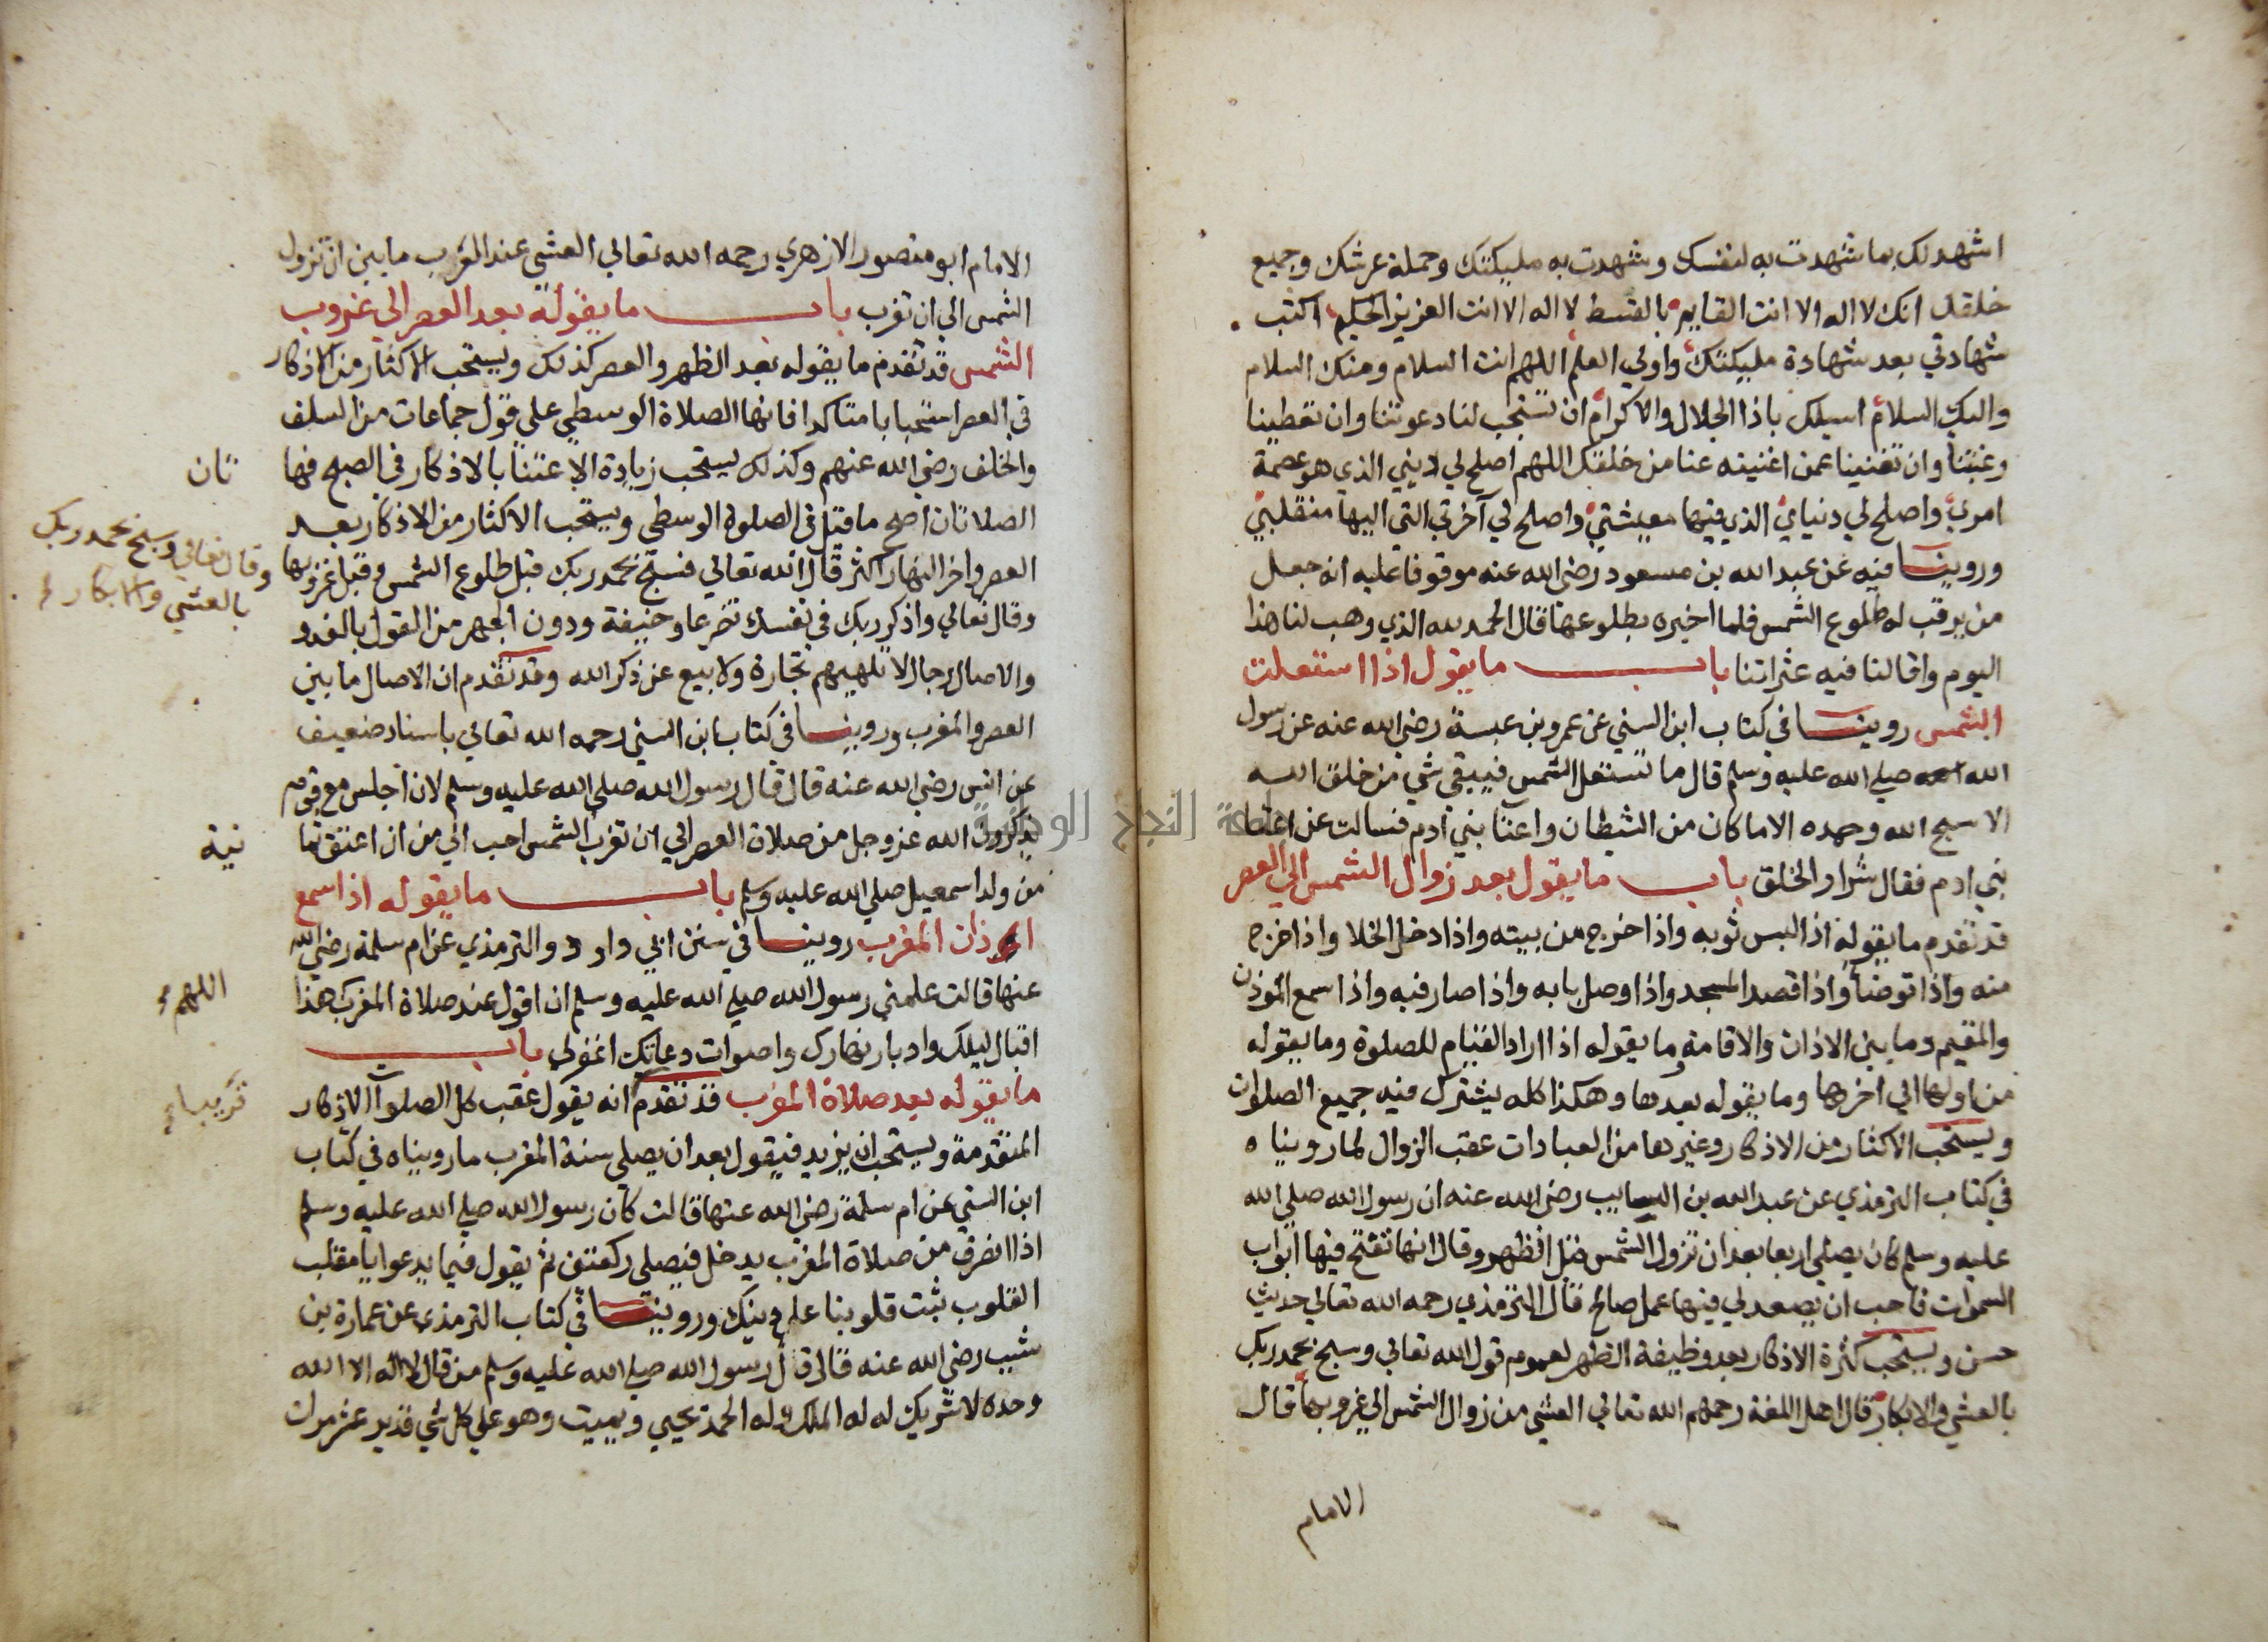 اشهد لك بما شهدت به لنفسك وشهدت به مليكتك وحملة عرشك وجميع
خلقك انك لا اله الا انت القايم بالقسط لا اله الا انت العزيز الحكيم اكتب
شهادتي بعد شهادة مليكتك واولي العلم اللهم انت السلام ومنك السلام
واليك السلام اسيلك ياذا الجلال والاكرام ان تستجب لنا دعوتنا وان تعطينا
رغبتنا وان تغنينا عمن اغنيته عنا من خلقك اللهم اصلح لي ديني الذي هو عصمة
امري واصلح لي دنياي الذي فيها معيشتي واصلح لي آخرتي التي اليها منقلبي
وروينا فيه عن عبد الله بن مسعود رضي الله عنه موقوفا عليه انه جعل
من يرقب له طلوع الشمس فلما اخبره بطلوعها قال الحمد لله الذي وهب لنا هذا
اليوم واقالنا فيه عثراتنا باب ما يقول اذا استعلت
الشمس روينا في كتاب ابن السني عن عمرو بن عبسة رضي الله عنه عن رسول
الله صلي الله عليه وسلم قال ما تستقل الشمس فيبقى شي من خلق الله
الا سبح الله وحمده الا ما كان من الشيطان واعتا بني آدم فسالت عن اعتا
بني ادم فقال شرار الخلق باب ما يقول بعد زوال الشمس الي العصر
قد تقدم ما يقوله اذا لبس ثوبه واذا خرج من بيته واذا دخل الخلا واذا خرج
منه واذا توضأ واذا قصد المسجد واذا وصل بابه واذا صار فيه واذا سمع المؤذن
والمقيم وما بين الاذان والاقامة وما يقوله اذا اراد القيام للصلوة وما يقوله
من اولها الي اخرها وما يقوله بعدها وهكذا كله يشترك فيه جميع الصلوات
ويستحب الاكثار من الاذكار وغيرها من العبادات عقب الزوال لما رويناه
في كتاب الترمذي عن عبد الله بن السايب رضي الله عنه ان رسول الله صلي الله
عليه وسلم كان يصلي اربعا بعد ان تزول الشمس قبل الظهر وقال انها تفتح فيها ابواب
السموات فاحب ان يصعد لي فيها عمل صالح قال الترمذي رحمه الله تعالي حديث
حسن ويستحب كثرة الاذكار بعد وظيفة الظهر لعموم قول الله تعالي وسبح بحمد ربك
بالعشي والابكار قال اهل اللغة رحمهم الله تعالي العشي من زوال الشمس الي غروبها قال
الامام
الامام ابو منصور الازهري رحمه الله تعالي العشي عند العرب ما بين ان تزول
الشمس الي ان تغرب باب ما يقوله بعد العصر الي غروب
الشمس قد تقدم ما يقوله بعد الظهر والعصر كذلك ويستحب الاكثار من الاذكار
في العصر استحبابا متاكدا فانها الصلاة الوسطي علي قول جماعات من السلف
والخلف رضي الله عنهم وكذلك يستحب زيادة الاعتنا بالاذكار في الصبح فها
تان
الصلاتان اصح ما قيل في الصلوة الوسطى ويستحب الاكثار من الاذكار بعد
العصر واخر النهار اكثر قال الله تعالي فسبح بحمد ربك قبل طلوع الشمس وقبل غروبها
وقال تعالي وسبح بحمد ربك
بالعشي والابكار
وقال تعالي واذكر ربك في نفسك تضرعا وخيفة ودون الجهر من القول بالغدو
والاصال رجال لا تلهيهم تجارة ولا بيع عن ذكر الله وقد تقدم ان الاصال ما بين
العصر والمغرب وروينا في كتاب ابن السني رحمه الله تعالي باسناد ضعيف
عن انس رضي الله عنه قال قال رسول الله صلي الله عليه وسلم لان اجلس مع قوم
يذكرون الله عز وجل من صلاة العصر الي ان تغرب الشمس احب الي من ان اعتق ثما
نية
من ولد اسمعيل صلي الله عليه وسلم باب ما يقوله اذا سمع
اذان المغرب روينا في سنن ابي داود والترمذي عن ام سلمة رضي الله
عنها قالت علمني رسول الله صلي الله عليه وسلم ان اقول عند صلاة المغرب هذا
اللهم
اقبال ليلك وادبار نهارك واصوات دعاتك اغفر لي باب
ما يقوله بعد صلاة المغرب قد تقدم انه يقول عقب كل الصلوات الاذكار
قريبا
المتقدمة ويستحب ان يزيد فيقول بعد ان يصلي سنة المغرب ما رويناه في كتاب
ابن السني عن ام سلمة رضي الله عنها قالت كان رسول الله صلي الله عليه وسلم
اذا انصرف من صلاة المغرب يدخل فيصلي ركعتين ثم يقول فيما يدعوا يا مقلب
القلوب ثبت قلوبنا علي دينك وروينا في كتاب الترمذي عن عمارة بن
شبيب رضي الله عنه قال قال رسول الله صلي الله عليه وسلم من قال لا اله الا الله
وحده لا شريك له له الملك وله الحمد يحيي ويميت وهو علي كل شي قدير عشر مرات